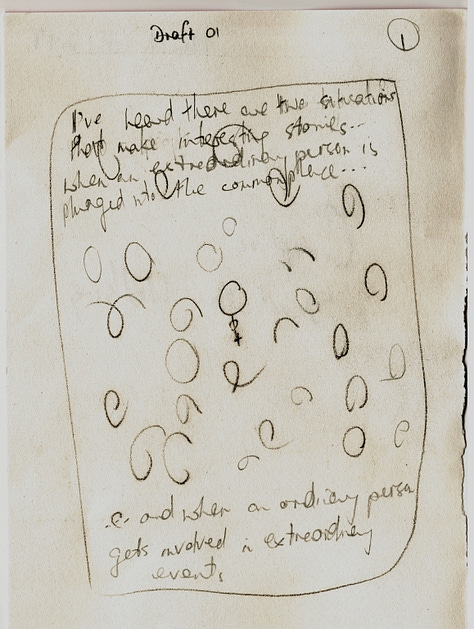 Draft 01
1
I've heard there are two situations
that make interesting stories...
when an extraordinary person is
plunged into the commonplace...
.. and when an ordinary person
gets involved in extreordinary
events,